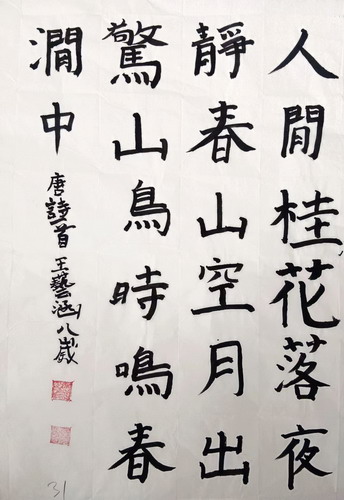 人閒桂花落夜
靜春山空月出
驚山鳥時鳴春
澗中
唐詩首 王藝涵 八歲
31